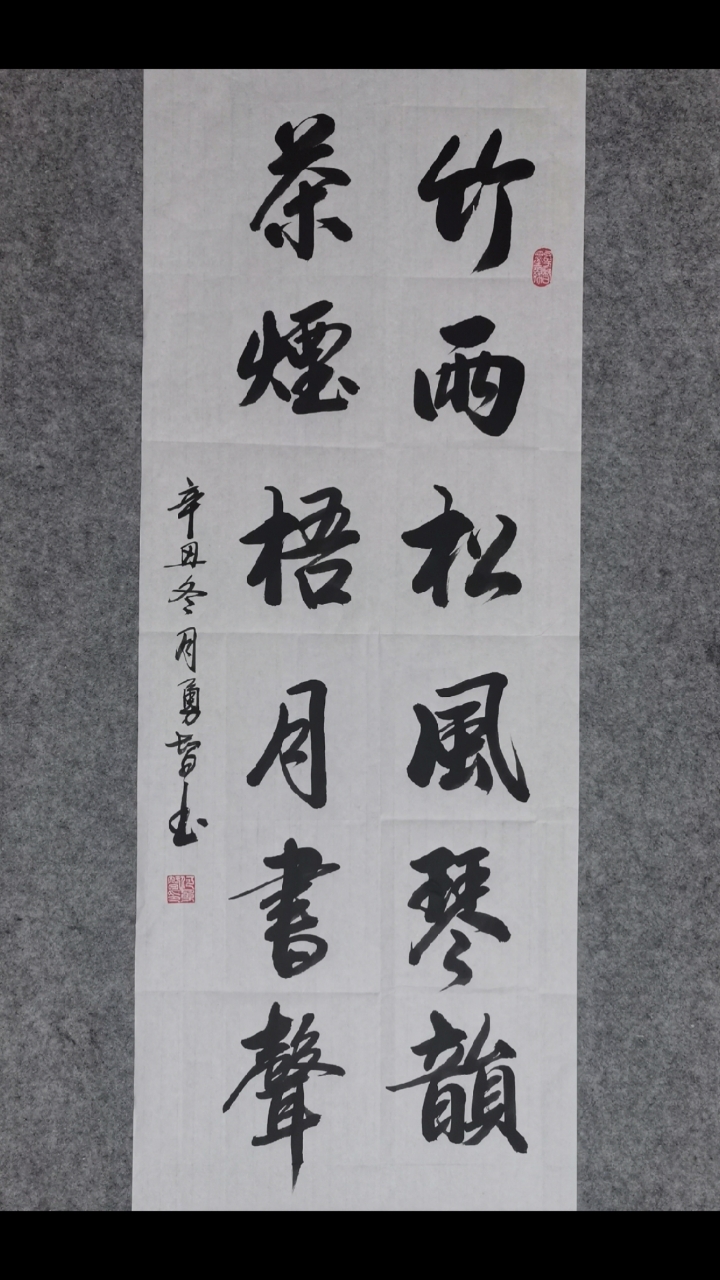 竹雨松風琴韻
茶煙梧月書聲
辛丑冬月勇智书